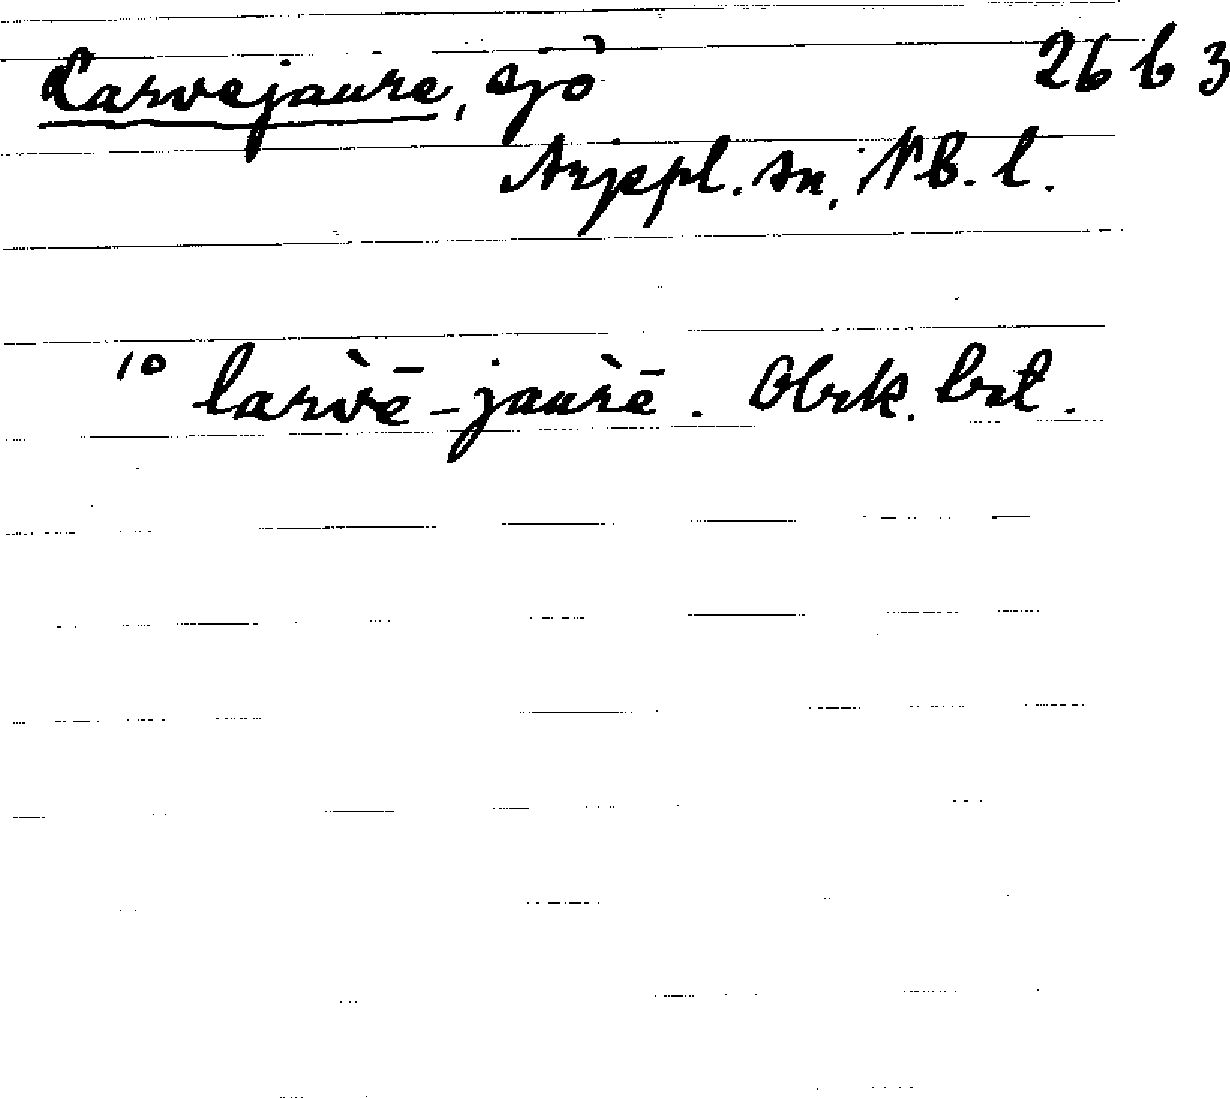 Larvejaure, sjö 26 b 3
Arjepl. sn, Nb. l.
1o larv̀ē-jaur̀ē. Obrk. bst.